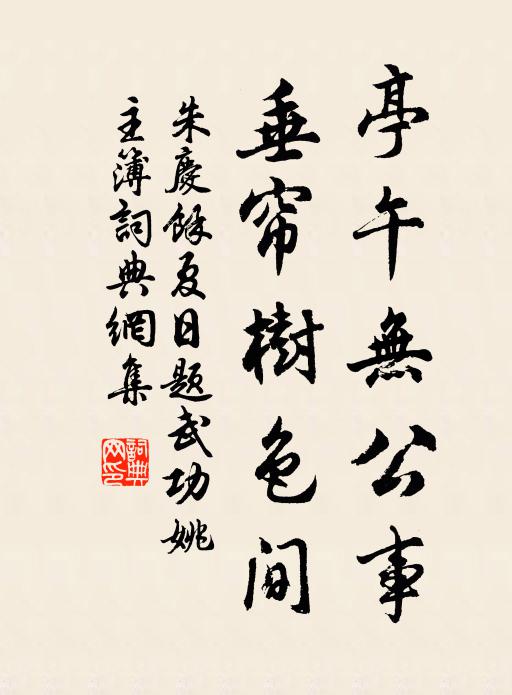 亭午無公事
垂帘樹色間
朱慶餘夏日題武功姚
主簿詞典網集
詞典網印